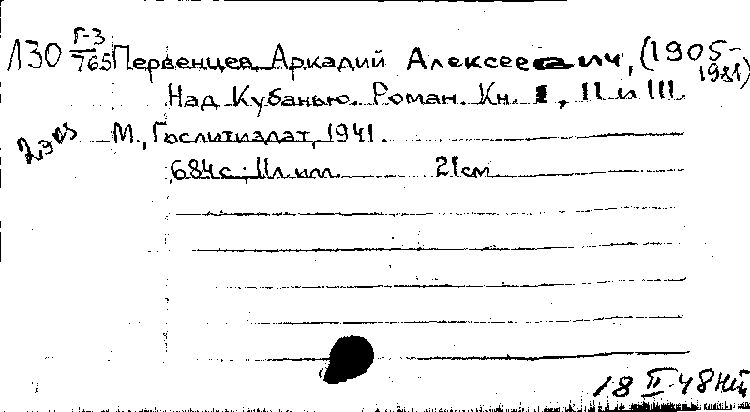 Л30 Г-3/765 Первенцев, Аркадий Алексеевич, (1905-1981)
Над Кубанью. Роман. Кн. I, II и III.
М., Гослитиздат, 1941.
684с; 11л. илл. 21см.
18 II 48